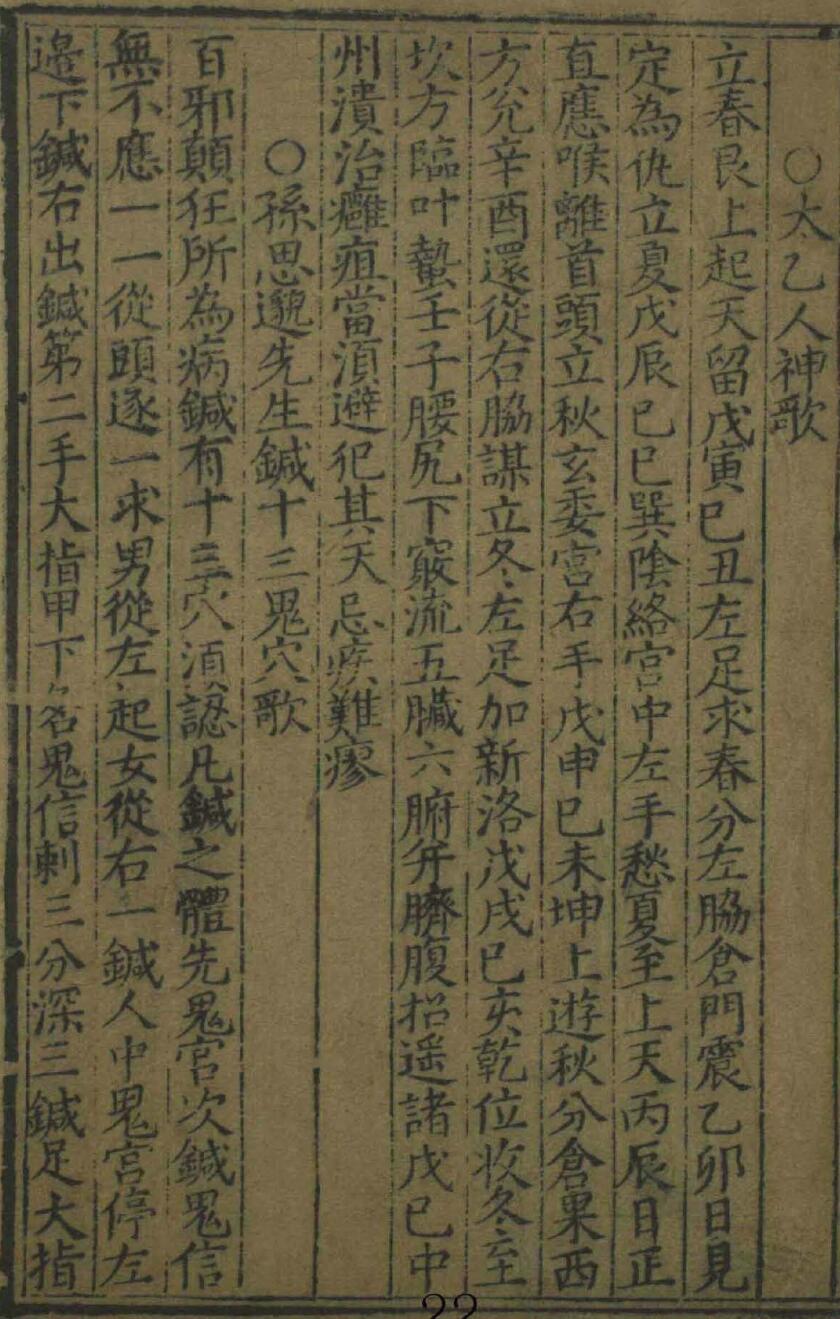 ○太乙人神歌
立春艮上起天留戊寅巳丑左足求春分左脇倉門震乙卯日見
定為仇立夏戊辰巳巳巽陰絡宮中左手愁夏至上天丙辰日正
直應喉離首頭立秋玄委宮右手戊申巳未坤上遊秋分倉果西
方兌辛酉還從右脇謀立冬左足加新洛戊戌巳亥乾位收冬至
坎方臨叶蟄壬子腰尻下竅流五臟六腑并臍腹招遥諸戊巳中
州潰治癰疽當湏避犯其天忌疾難瘳
○孫思邈先生鍼十三鬼穴歌
百邪顛狂所為病鍼有十三穴湏認凡鍼之體先鬼宮次鍼鬼信
無不應一一從頭逐一求男從左起女從右一鍼人中鬼宮停左
邉下鍼右出鍼第二手大指甲下名鬼信刺三分深三鍼足大指
22